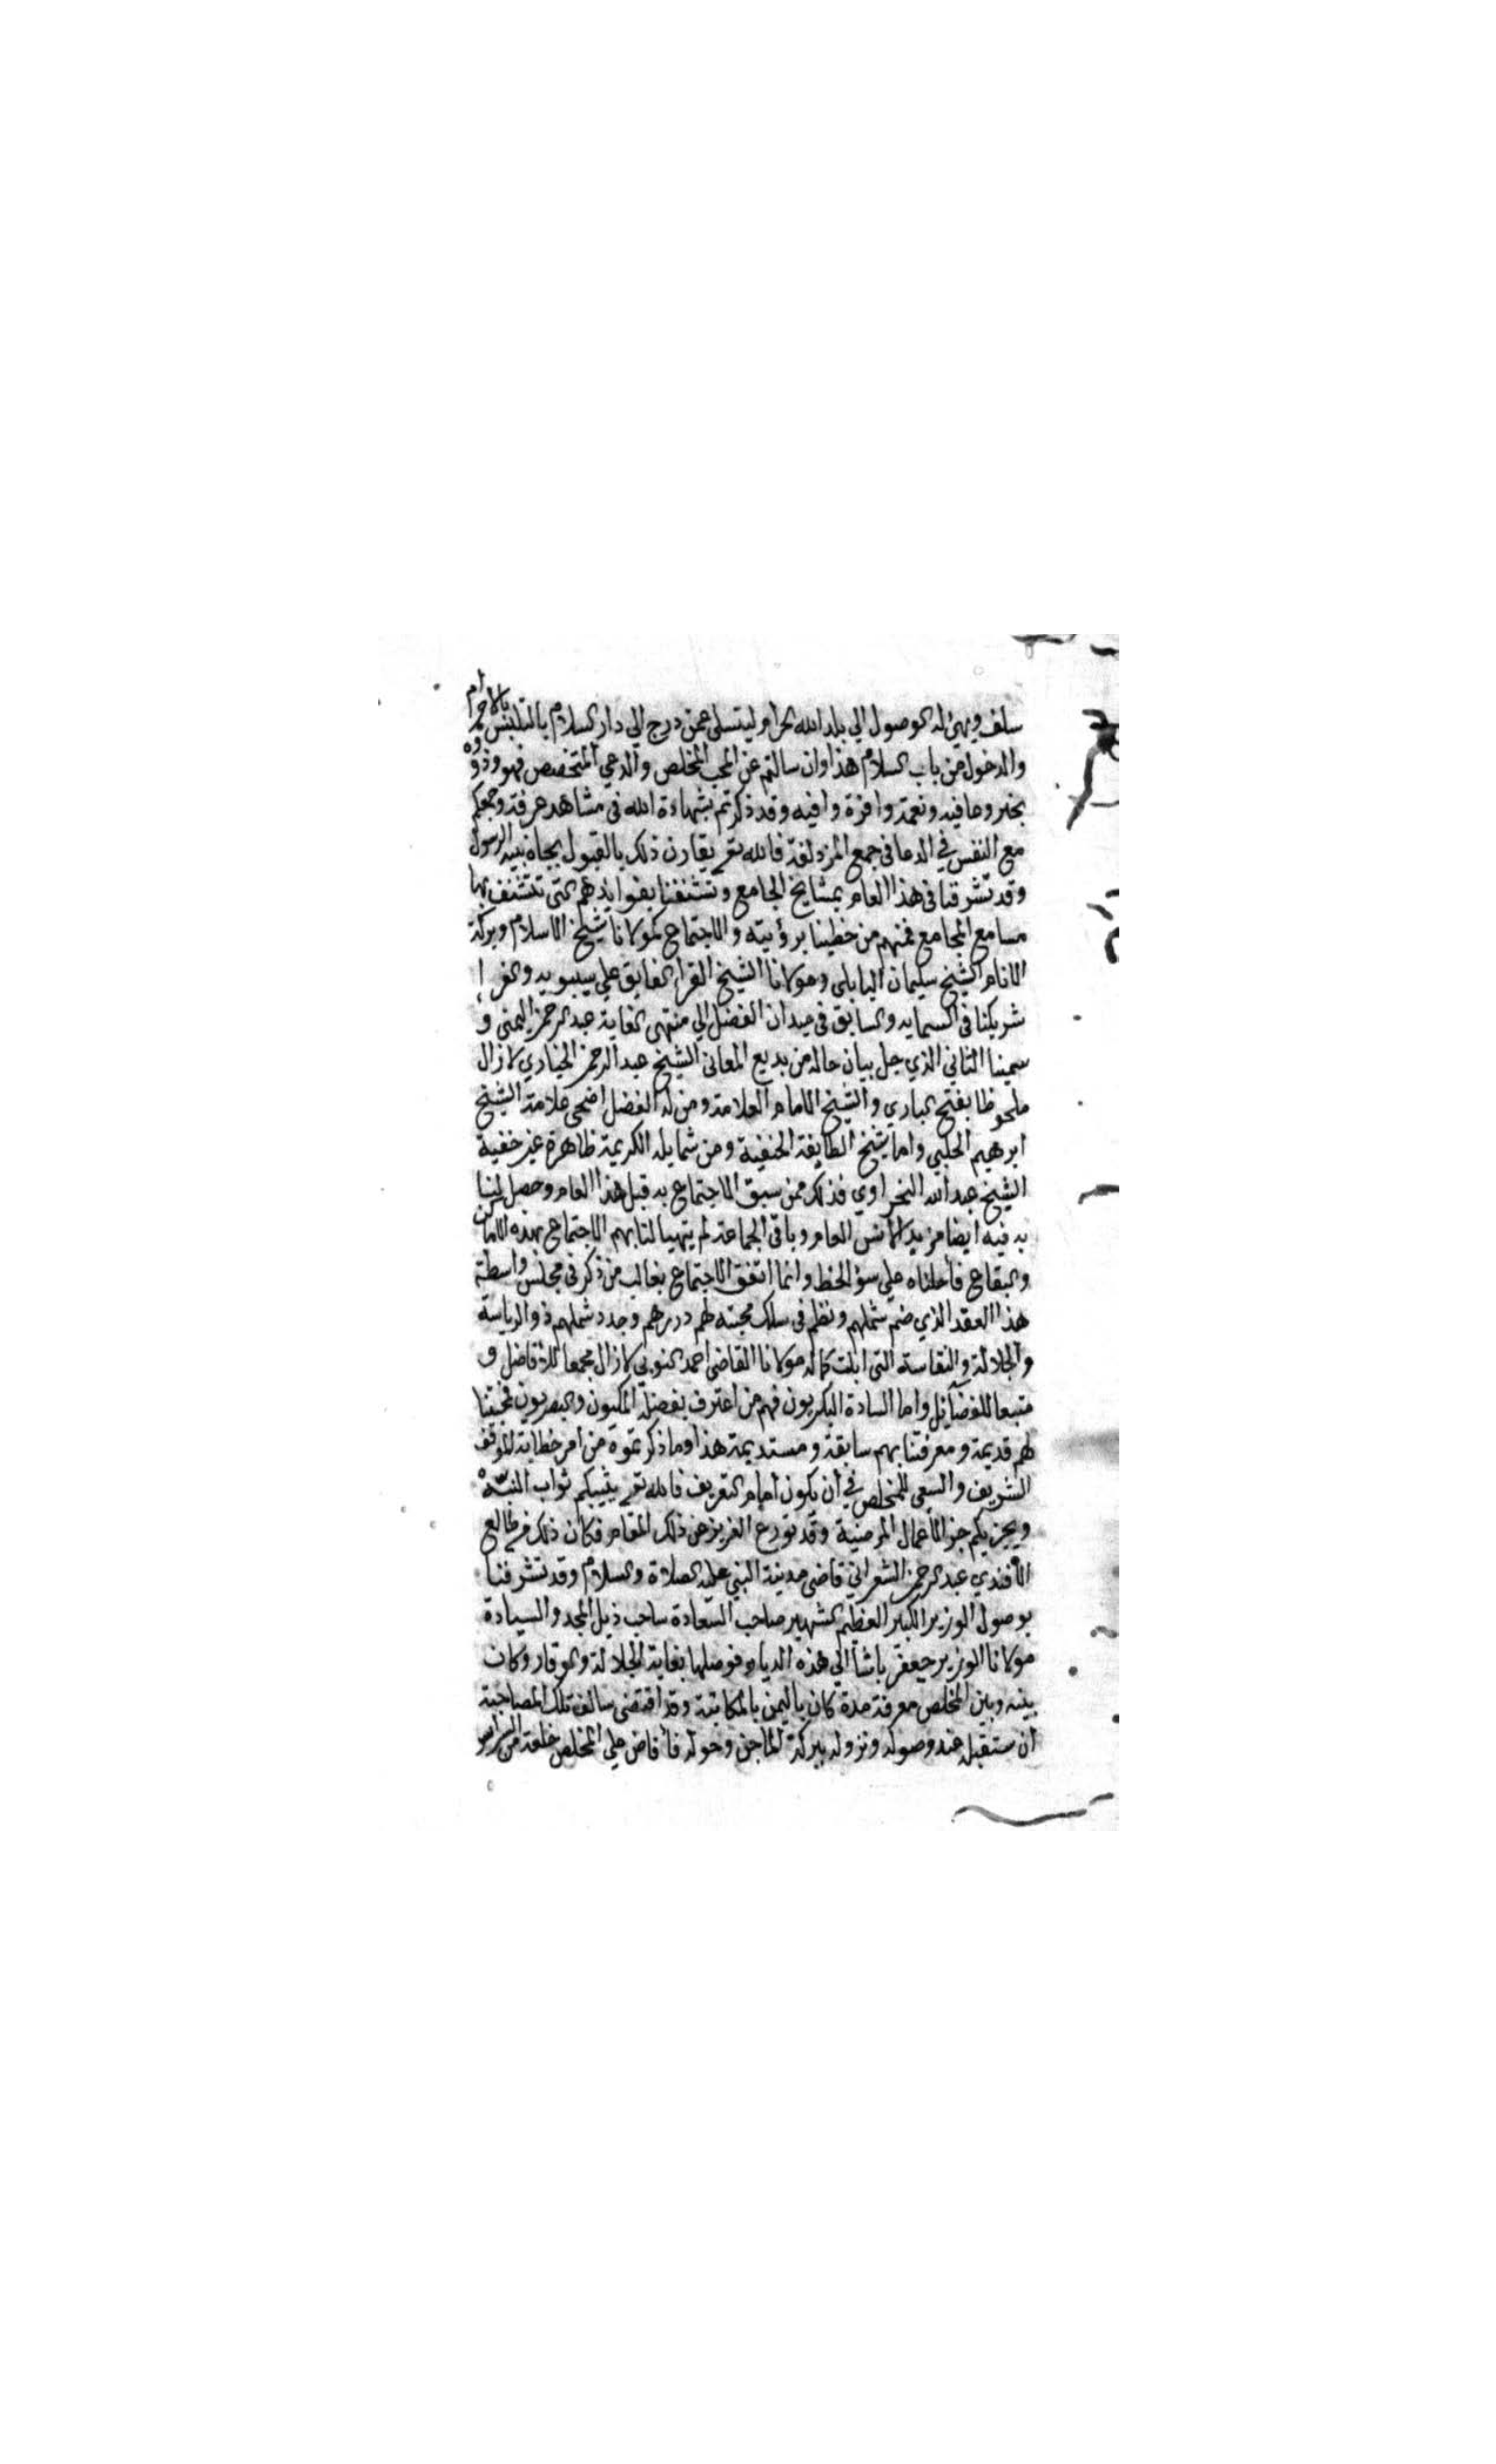 سلف ويهيئ له الوصول الي بلد الله الحرام ليتسلى عمن درج الي دار السلام بالتلبس بالاحرام
والدخول من باب السلام هذا وان سالتم عن المحب المخلص والداعي المتخصص فهو وذووه
بخير وعافيه ونعمة وافرة وافيه وقد ذكرتم بشهادة الله في مشاهد عرفة وجمعكم
مع النفس في الدعا في جمع المزدلفة فالله تعالى يقارن ذلك بالقبول بجاه نبيه الرسول
وقد تشرفنا في هذا العام بمشايخ الجامع وتشنفنا بفوايدهم التي تتشنف بها
مسامع المجامع فمنهم من حظينا برؤيته والاجتماع كمولانا شيخ الاسلام وبركة
الانام الشيخ سليمان البابلي ومولانا الشيخ القرا الفايق علي سيبويه والفرا
شريكنا في السمايه والسابق في ميدان الفضل الي منتهي الغاية عبد الرحمن اليمني و
سمينا الثاني الذي جل بيان حاله من بديع المعاني الشيخ عبد الرحمن الخياري لازال
ملحوظا بفتح الباري والشيخ الامام العلامة ومن له الفضل اضحى علامة الشيخ
ابرهيم الحلبي واما شيخ الطايفة الحنفية ومن شمايله الكريمة ظاهرة غير خفية
الشيخ عبد الله النحراوي فذلك ممن سبق الاجتماع به قبل هذا العام وحصل لنا
به فيه ايضا مزيد الانس العام وباقي الجماعة لم يتهيا لنا بهم الاجتماع بهذه الاماكن
والبقاع فأحلناه علي سؤ الحظ وانما اتفق الاجتماع بغالب من ذكر في مجلس واسطة
هذا العقد الذي ضم شملهم ونظم في سلك محبته لهم دررهم وجدد شملهم ذو الرياسة
والجلالة والنفاسة التي ابانت كماله مولانا القاضي احمد النوبي لازال مجمعا للافاضل و
منبعا للفضائل واما السادة البكريون فهم من اعترف بفضله المكيون والبصريون فمحبتنا
لهم قديمة ومعرفتنا بهم سابقة ومستديمة هذا وما ذكرتموه من امر خطابة الموقف
الشريف والسعي للمخلص في أن يكون امام التعريف فالله تعالى يثيبكم ثواب النية
ويجزيكم جزا الأعمال المرضية وقد تورع العزيز عن ذلك المقام فكان ذلك من طالع
الأفندي عبد الرحمن الشعراني قاضي مدينة النبي عليه الصلاة والسلام وقد تشرفنا
بوصول الوزير الكبير العظيم الشهير صاحب السعادة ساحب ذيل المجد والسيادة
مولانا الوزير جعفر باشا الي هذه الديار فوصلها بغاية الجلالة والوقار وكان
بينه وبين المخلص معرفة مدة كان باليمن بالمكاتبة وقد اقتضى سالف تلك المصاحبة
أن ستقبل عند وصوله ونزوله ببركة الماجن وحوله فأفاض علي المخلص خلعة من